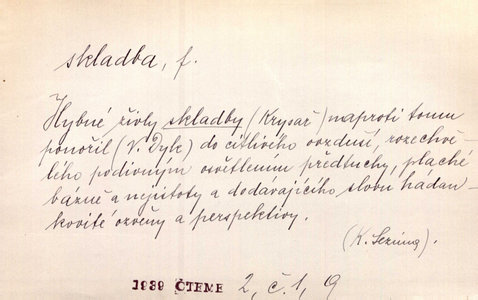 skladba, f.
Hybné živly skladby (Krysař) naproti tomu
ponořil (V. Dyk) do citlivého ovzduší, rozechvě-
lého podivným osvětlením předtuchy, plaché
bázně a nejistoty a dodávajícího slovu hádan-
kovité ozvěny a perspektivy.
(K. Sezima).
1939 ČTEME 2, č. 1, 9